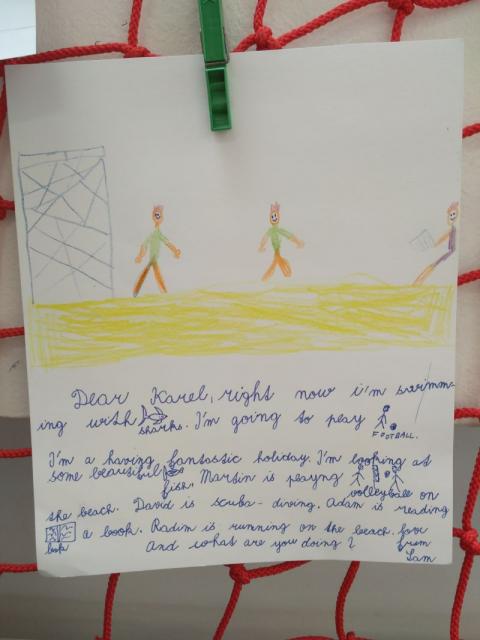 Dear Karel, right now i'm swimm-
ing with sharks. I'm going to play
FOOTBALL.
I'm a having fantastic holiday. I'm looking at
some beautiful fish. Martin is playng
volleyball on
the beach. David is scuba-diving. Adam is reading
book a book. Radim is running on the beach.
And what are you doing? from
Sam